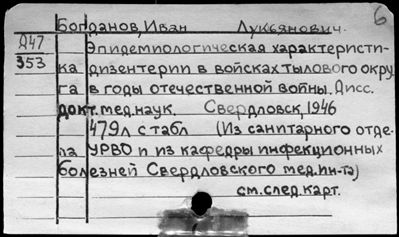 6
Богданов, Иван Лукьянович.
Д47
353
Эпидемиологическая характеристи-
ка дизентерии в войсках тылового окру
га в годы отечественной войны. Дисс.
докт. мед. наук. Свердловск, 1946
479л с табл (Из санитарного отде-
ла УРВО и из кафедры инфекционных
болезней Свердловского мед. ин-та)
см. след. карт.